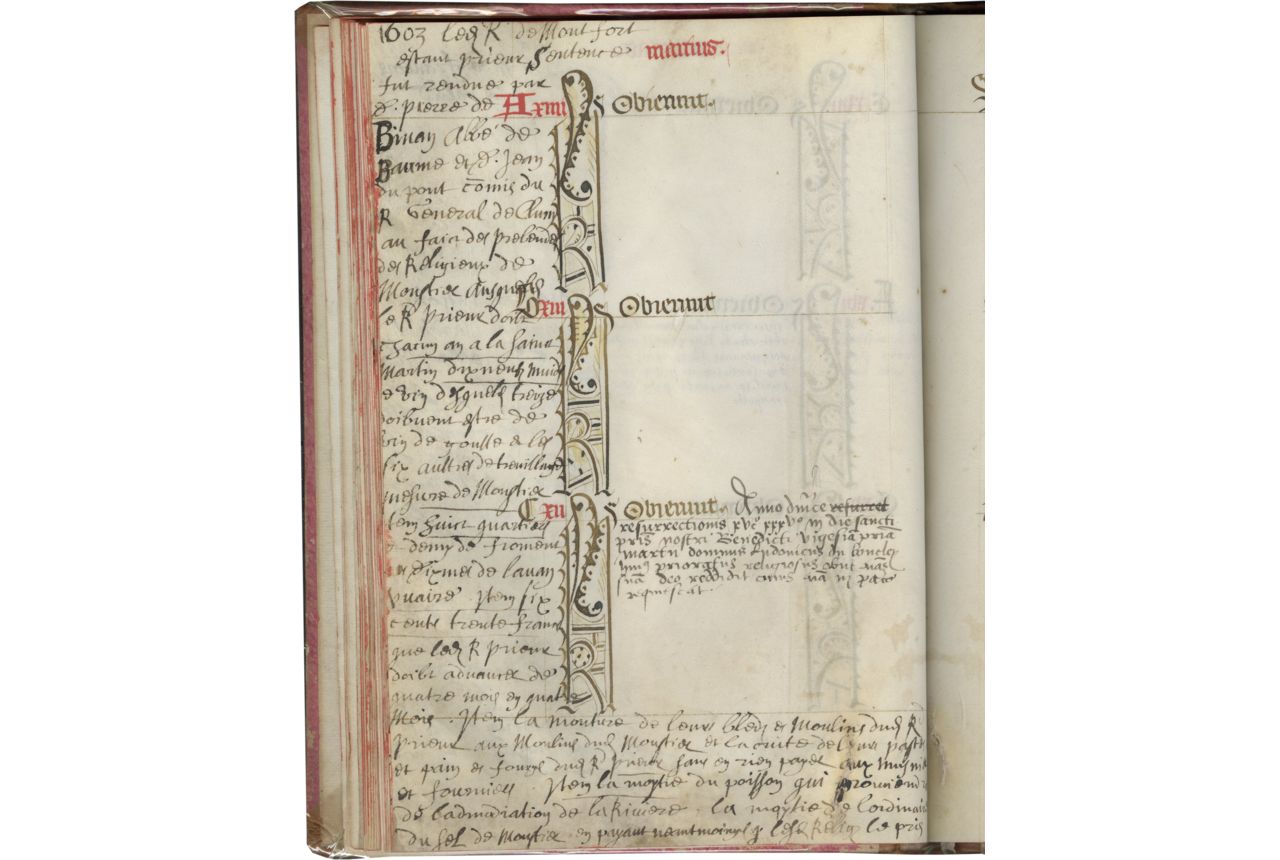 1603 led R de Montfort
estant prieur Sentence
martius.
fut rendue par
d. pierre de
A xiiii S Obierunt.
Binan Abbé de
Baume et d. Jean
du pont comis du
R General de Cluny
au faict des prebendes
des Religieux de
Moustier Ausquels
b xiii S Obierunt
le R prieur doibt
chacun an a la saint
Martin dixneufz muidz
de vin desquelz treize
doibvent estre de
vin de goulle & les
six aultres de treuillage
mesure de Moustier
C xii S Obierunt. Anno dnice resurrect
resurrectionis xvc xxxvo in die sancti
pris nostri Benedicti vigesia pria
martii dominus Ludonicus du
prioratus religiosus obiit
suã deo reddidit cuius aña in pace
requiescat.
Item huict quartiers
& demy de froment
dixmes de lauan
vuaire. Item six
cents trente francs
que led R prieur
doibt advancer de
quatre mois en quatre
Mois. Item la mouture de leurs bledz es Moulins dud R
prieur aux Moulins dud Moustier et la cuite de leurs pastes
et pain es fourgs dud R prieur sans en rien payer aux musniers
et fourniers. Item la moytie du poisson qui provient
de ladmodiation de la Riviere. la moytie de lordinaire
du sel de Moustier en payant neantmoings p lesd Relig le pris